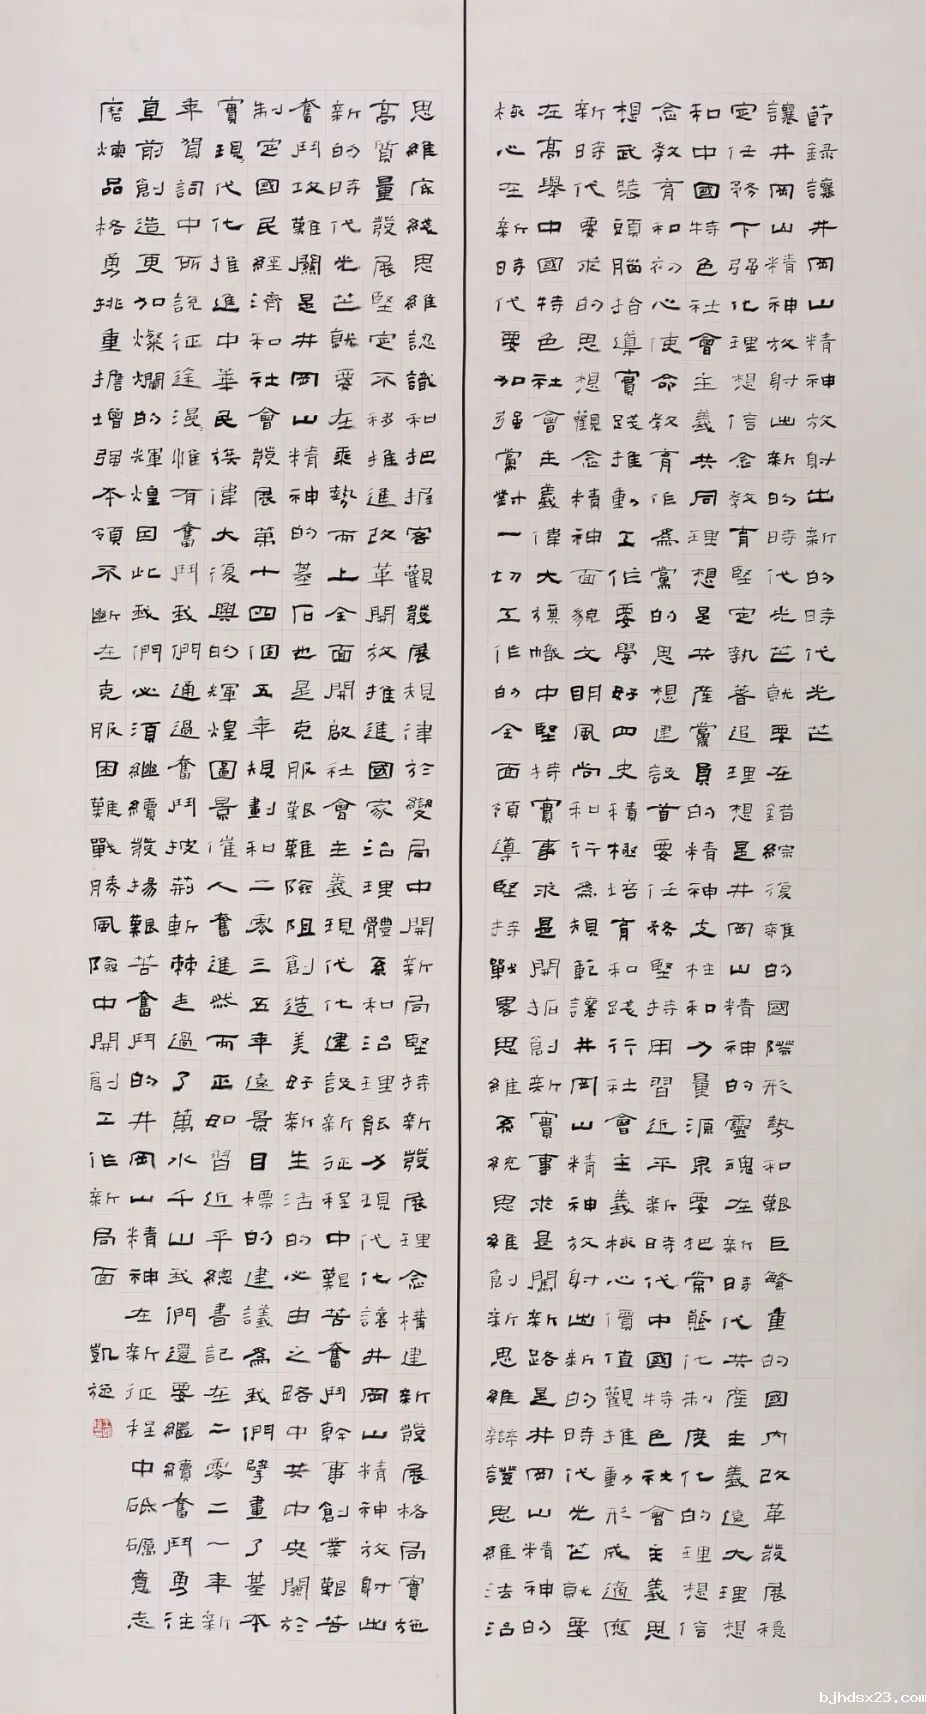 節録讓井岡山精神放射出新的時代光芒
讓井岡山精神放射出新的時代光芒就要在錯綜復雜的國際形勢和艱巨繁重的國内改革發展穩
定任務下强化理想信念教育堅定執著追理想是井岡山精神的靈魂在新時代共産主義遠大理想
和中國特色社會主義共同理想是共産黨員的精神支柱和力量源泉要把常態化制度化的理想信
念教育和初心使命教育作爲黨的思想建設首要任務堅持用習近平新時代中國特色社會主義思
想武裝頭腦指導實踐推動工作要學好四史積極培育和踐行社會主義核心價值觀推動形成適應
新時代要求的思想觀念精神面貌文明風尚和行爲規範讓井岡山精神放射出新的時代光芒就要
在高舉中國特色社會主義偉大旗幟中堅持實事求是開拓創新實事求是闖新路是井岡山精神的
核心在新時代要加强黨對一切工作的全面領導堅持戰畧思維系統思維創新思維辯證思維法治
思維底綫思維認識和把握客觀發展規律於變局中開新局堅持新發展理念構建新發展格局實施
高質量發展堅定不移推進改革開放推進國家治理體系和治理能力現代化讓井岡山精神放射出
新的時代光芒就要在乘勢而上全面開啟社會主義現代化建設新征程中艱苦奮鬥幹事創業艱苦
奮鬥攻難關是井岡山精神的基石也是克服艱難險阻創造美好新生活的必由之路中共中央關於
制定國民經濟和社會發展第十四個五年規劃和二零三五年遠景目標的建議爲我們擘畫了基本
實現代化推進中華民族偉大復興的輝煌圖景催人奮進然而正如習近平總書記在二零二一年新
年賀詞中所説征途漫惟有奮鬥我們通過奮鬥披荆斬棘走過了萬水千山我們還要繼續奮鬥勇往
直前創造更加燦爛的輝煌因此我們必須繼續發揚艱苦奮鬥的井岡山精神在新征程中砥礪意志
磨煉品格勇挑重擔增强本領不斷在克服困難戰勝風險中開創工作新局面
凱施
bjhdsx23.com